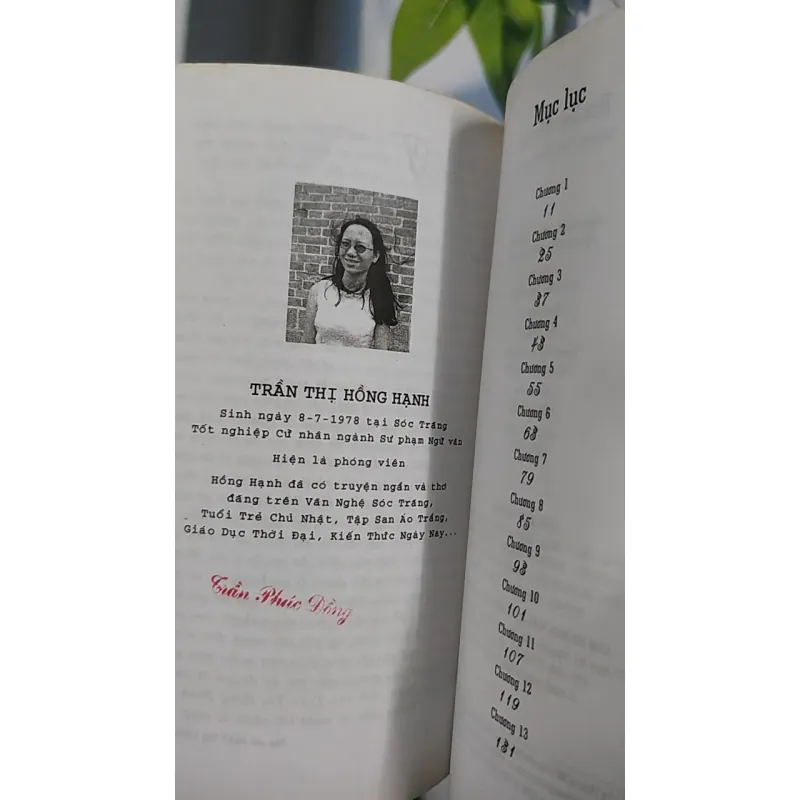 TRẦN THỊ HỒNG HẠNH
Sinh ngày 8-7-1978 tại Sóc Trăng
Tốt nghiệp Cử nhân ngành Sư phạm Ngữ văn
Hiện là phóng viên
Hồng Hạnh đã có truyện ngắn và thơ
đăng trên Văn Nghệ Sóc Trăng,
Tuổi Trẻ Chủ Nhật, Tập San Áo Trắng,
Giáo Dục Thời Đại, Kiến Thức Ngày Nay...
Trần Phúc Đồng
Mục lục
Chương 1
11
Chương 2
25
Chương 3
37
Chương 4
43
Chương 5
55
Chương 6
63
Chương 7
79
Chương 8
85
Chương 9
93
Chương 10
101
Chương 11
107
Chương 12
119
Chương 13
131